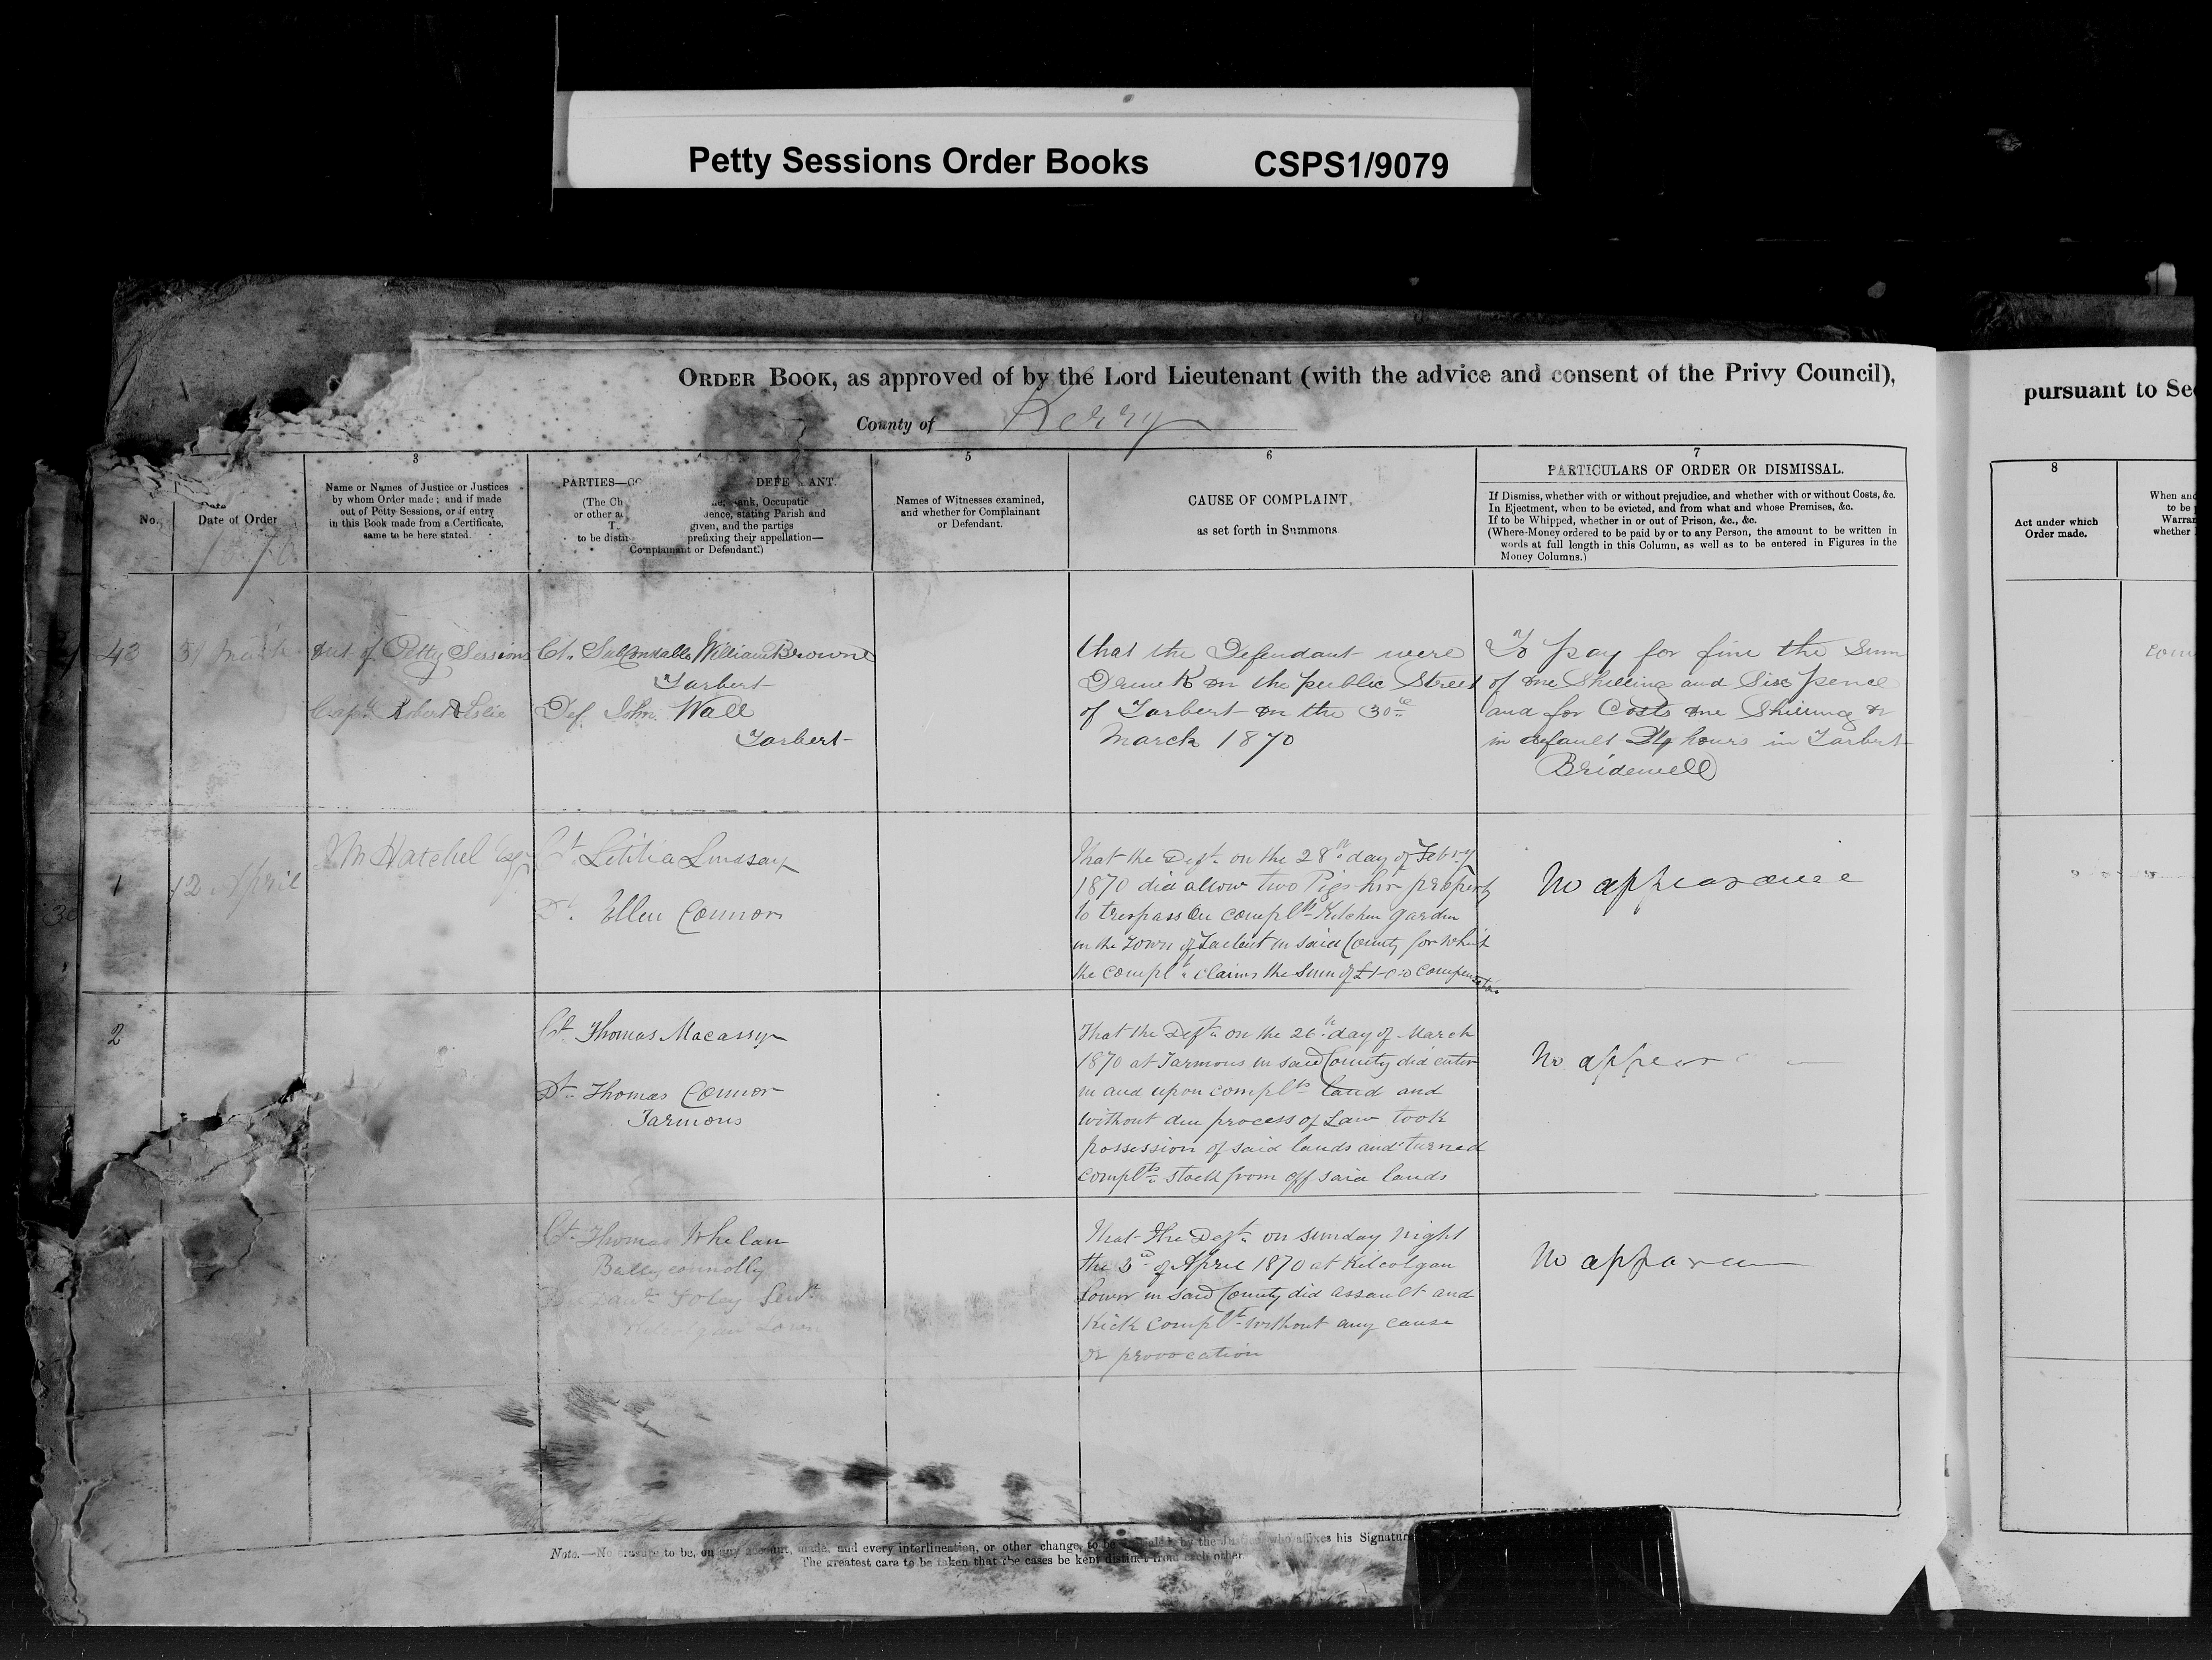 Petty Sessions Order Books CSPS1/9079
ORDER BOOK, as approved of by the Lord Lieutenant (with the advice and consent of the Privy Council),
pursuant to Sec
County of Kerry
3
5
6
7
8
No.
Date of Order
1870
Name or Names of Justice or Justices
by whom Order made; and if made
out of Petty Sessions, or if entry
in this Book made from a Certificate,
same to be here stated.
PARTIES—CO DEFE ANT.
(The Ch ank, Occupatic
or other a dence, stating Parish and
T given, and the parties
to be distin prefixing their appellation—
Complainant or Defendant.)
Names of Witnesses examined,
and whether for Complainant
or Defendant.
CAUSE OF COMPLAINT,
as set forth in Summons
PARTICULARS OF ORDER OR DISMISSAL.
If Dismiss, whether with or without prejudice, and whether with or without Costs, &c.
In Ejectment, when to be evicted, and from what and whose Premises, &c.
If to be Whipped, whether in or out of Prison, &c., &c.
(Where Money ordered to be paid by or to any Person, the amount to be written in
words at full length in this Column, as well as to be entered in Figures in the
Money Columns.)
Act under which
Order made.
When and
to be
Warran
whether
43
31 March
Out of Petty Sessions
Captn Robert Leslie
Ct. SubConstable William Browne
Tarbert
Def. John Wall
Tarbert
that the Defendant were
Drunk on the public Street
of Tarbert on the 30th
March 1870
To pay for fine the Sum
of one Shilling and Six pence
and for Costs one Shilling or
in default 24 hours in Tarbert
Bridewell
1
12 April
M Hatchel Esqr
Ct Letitia Lindsay
Dt. Ellen Connor
That the Deft. on the 28th day of Febry
1870 did allow two Pigs her property
to trespass on complts Kitchen garden
in the Town of Tarbert in said County for which
the complt. claims the Sum of £1-0-0 compensatn.
No appearance
2
Ct Thomas Macassy
Dt. Thomas Connor
Tarmons
That the Deft. on the 26th day of March
1870 at Tarmons in said County did enter
in and upon complts land and
without due process of Law took
possession of said lands and turned
complts. stock from off said lands
No appear
Ct. Thomas Whelan
Ballyconnolly
Foley
That the Deft. on Sunday night
the 3rd of April 1870 at Kilcolgan
Lower in said County did assault and
Kick complt. without any cause
or provocation
No appearan
Note.—No erasure to be, on any account, made, and every interlineation, or other change, to be by the Justice who affixes his Signature
The greatest care to be taken that the cases be kept distinct from each other.